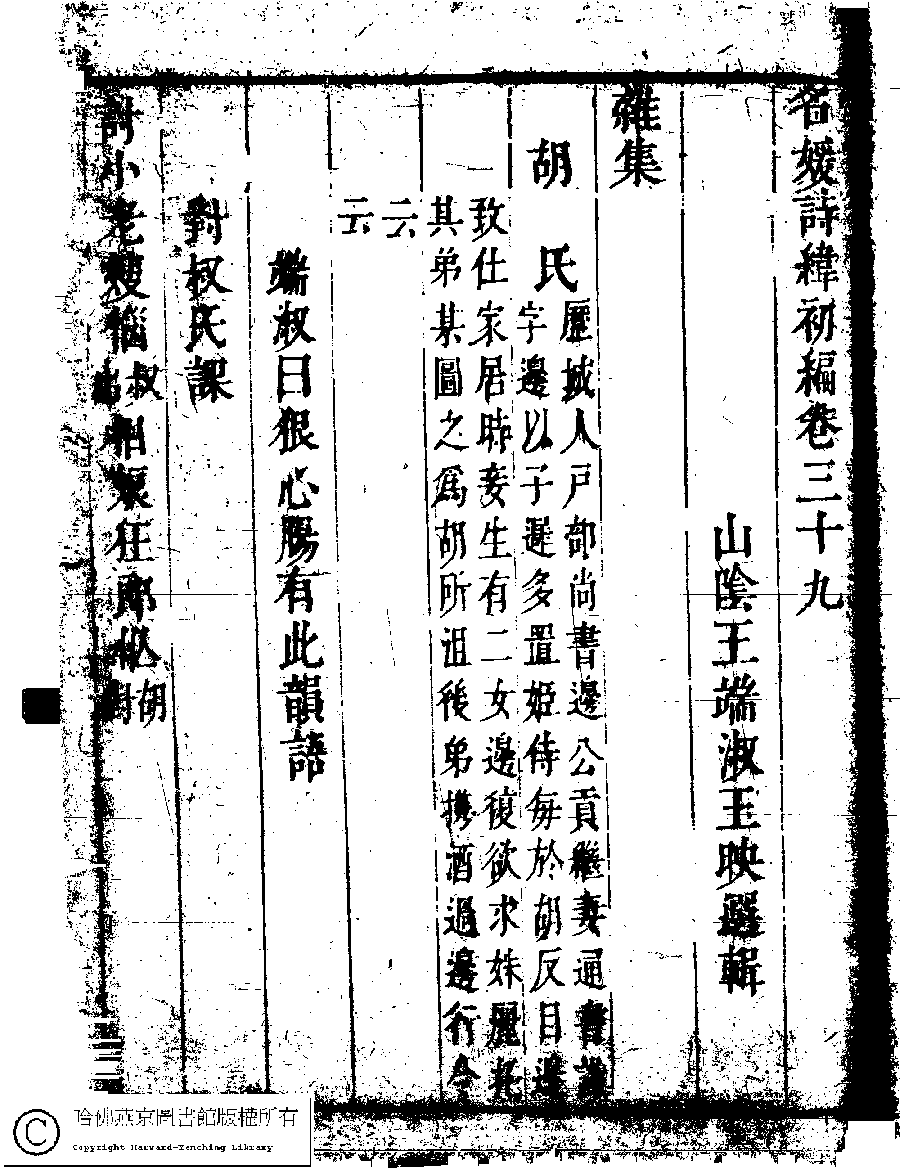 名媛詩緯初編卷三十九
山陰王端淑玉映選輯
雜集
胡氏
歷城人戶部尚書邊公貢繼妻通書
字邊以子遲多置姬侍每於胡反目邊
致仕家居時妾生有二女邊復欲求姝麗托
其弟某圖之為胡所沮後弟携酒過邊行令
云云
端淑曰狠心腸有此韻語
對叔氏課
討小老嫂惱
叔出
想娘狂郎忙
胡對
哈佛燕京圖書館版權所有
Copyright Harvard-Yenching Library